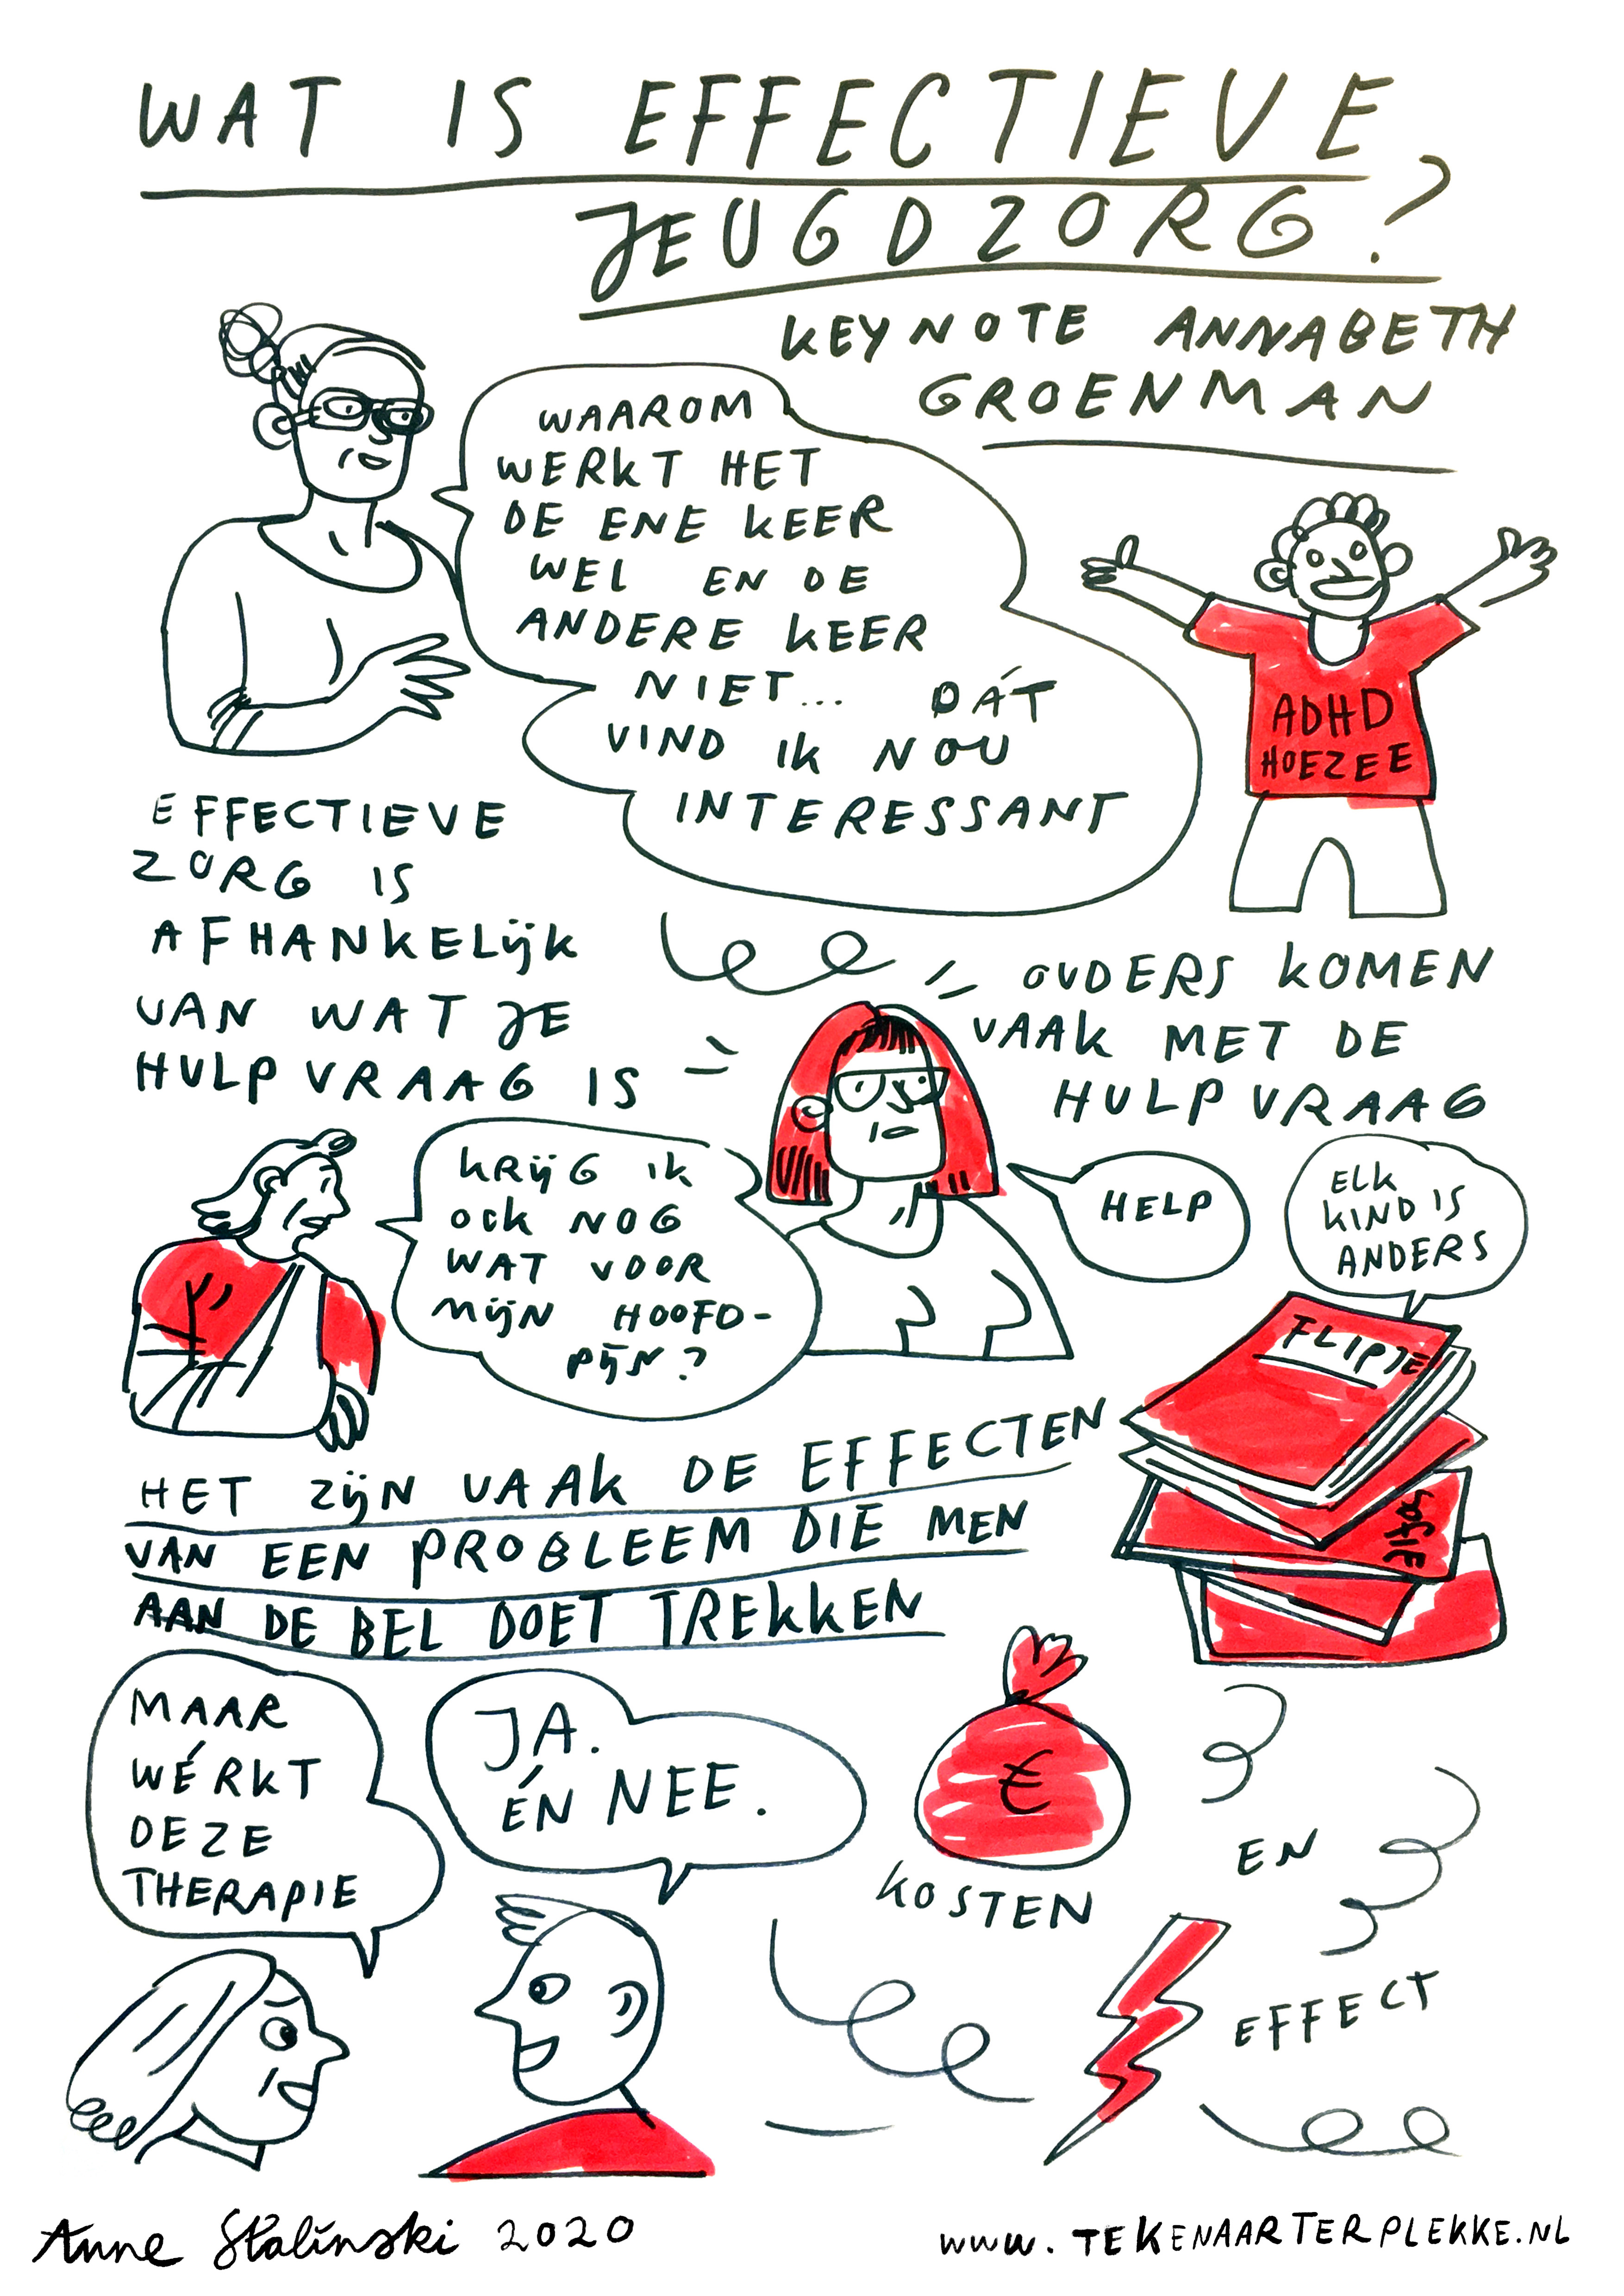 WAT IS EFFECTIEVE
JEUGDZORG?
KEYNOTE ANNABETH
GROENMAN
WAAROM
WERKT HET
DE ENE KEER
WEL EN DE
ANDERE KEER
NIET... DÁT
VIND IK NOU
INTERESSANT
ADHD
HOEZEE
EFFECTIEVE
ZORG IS
AFHANKELIJK
VAN WAT JE
HULPVRAAG IS
OUDERS KOMEN
VAAK MET DE
HULPVRAAG
HELP
KRIJG IK
OOK NOG
WAT VOOR
MIJN HOOFD-
PIJN?
ELK
KIND IS
ANDERS
FLIPJE
SOFIE
HET ZIJN VAAK DE EFFECTEN
VAN EEN PROBLEEM DIE MEN
AAN DE BEL DOET TREKKEN
MAAR
WÉRKT
DEZE
THERAPIE
JA.
ÉN NEE.
€
KOSTEN
EN
EFFECT
Anne Stalinski 2020
www.TEKENAARTERPLEKKE.NL